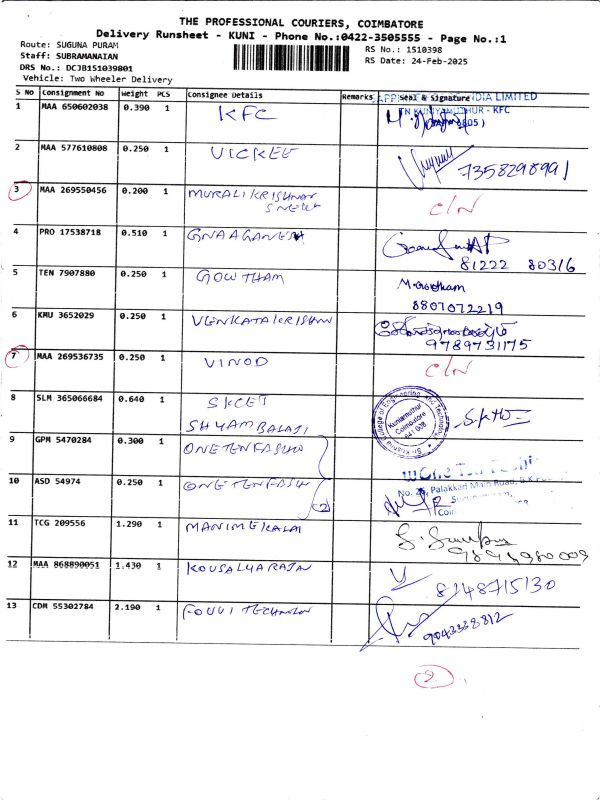 THE PROFESSIONAL COURIERS, COIMBATORE
Delivery Runsheet - KUNI - Phone No.:0422-3505555 - Page No.:1
Route: SUGUNA PURAM
RS No.: 1510398
Staff: SUBRAMANAIAN
RS Date: 24-Feb-2025
DRS No.: DCJB151039801
Vehicle: Two Wheeler Delivery
S No Consignment No Weight PCS Consignee Details Remarks Seal & Signature
INDIA LIMITED
1 MAA 650602038 0.390 1 KFC
TN KUNIYAMUTHUR - KFC
2 MAA 577610808 0.250 1 VICKEE 7358298991
3 MAA 269550456 0.200 1 MURALI KRISHNAN C/N
4 PRO 17538718 0.510 1 GNAAGANESH
81222 80316
5 TEN 7907880 0.250 1 GOWTHAM M. Gowtham
8807072219
6 KMU 3652029 0.250 1 VENKATAKRISHNN
9789731175
7 MAA 269536735 0.250 1 VINOD C/N
8 SLM 365066684 0.640 1 SKCET
SHYAM BALAJI
Sri Krishna College of Engineering And Technology
Kuniamuthur
Coimbatore
641 008
9 GPM 5470284 0.300 1 ONE TEN FASHIO
10 ASD 54974 0.250 1 ONE TEN FASH
(2)
Palakkad Main Road,
11 TCG 209556 1.290 1 MANIMEKALAI
12 MAA 868890051 1.430 1 KOUSALYARAJAN 8148715130
13 CDM 55302784 2.190 1 FOUVI TECHNOLON
9043338812
2